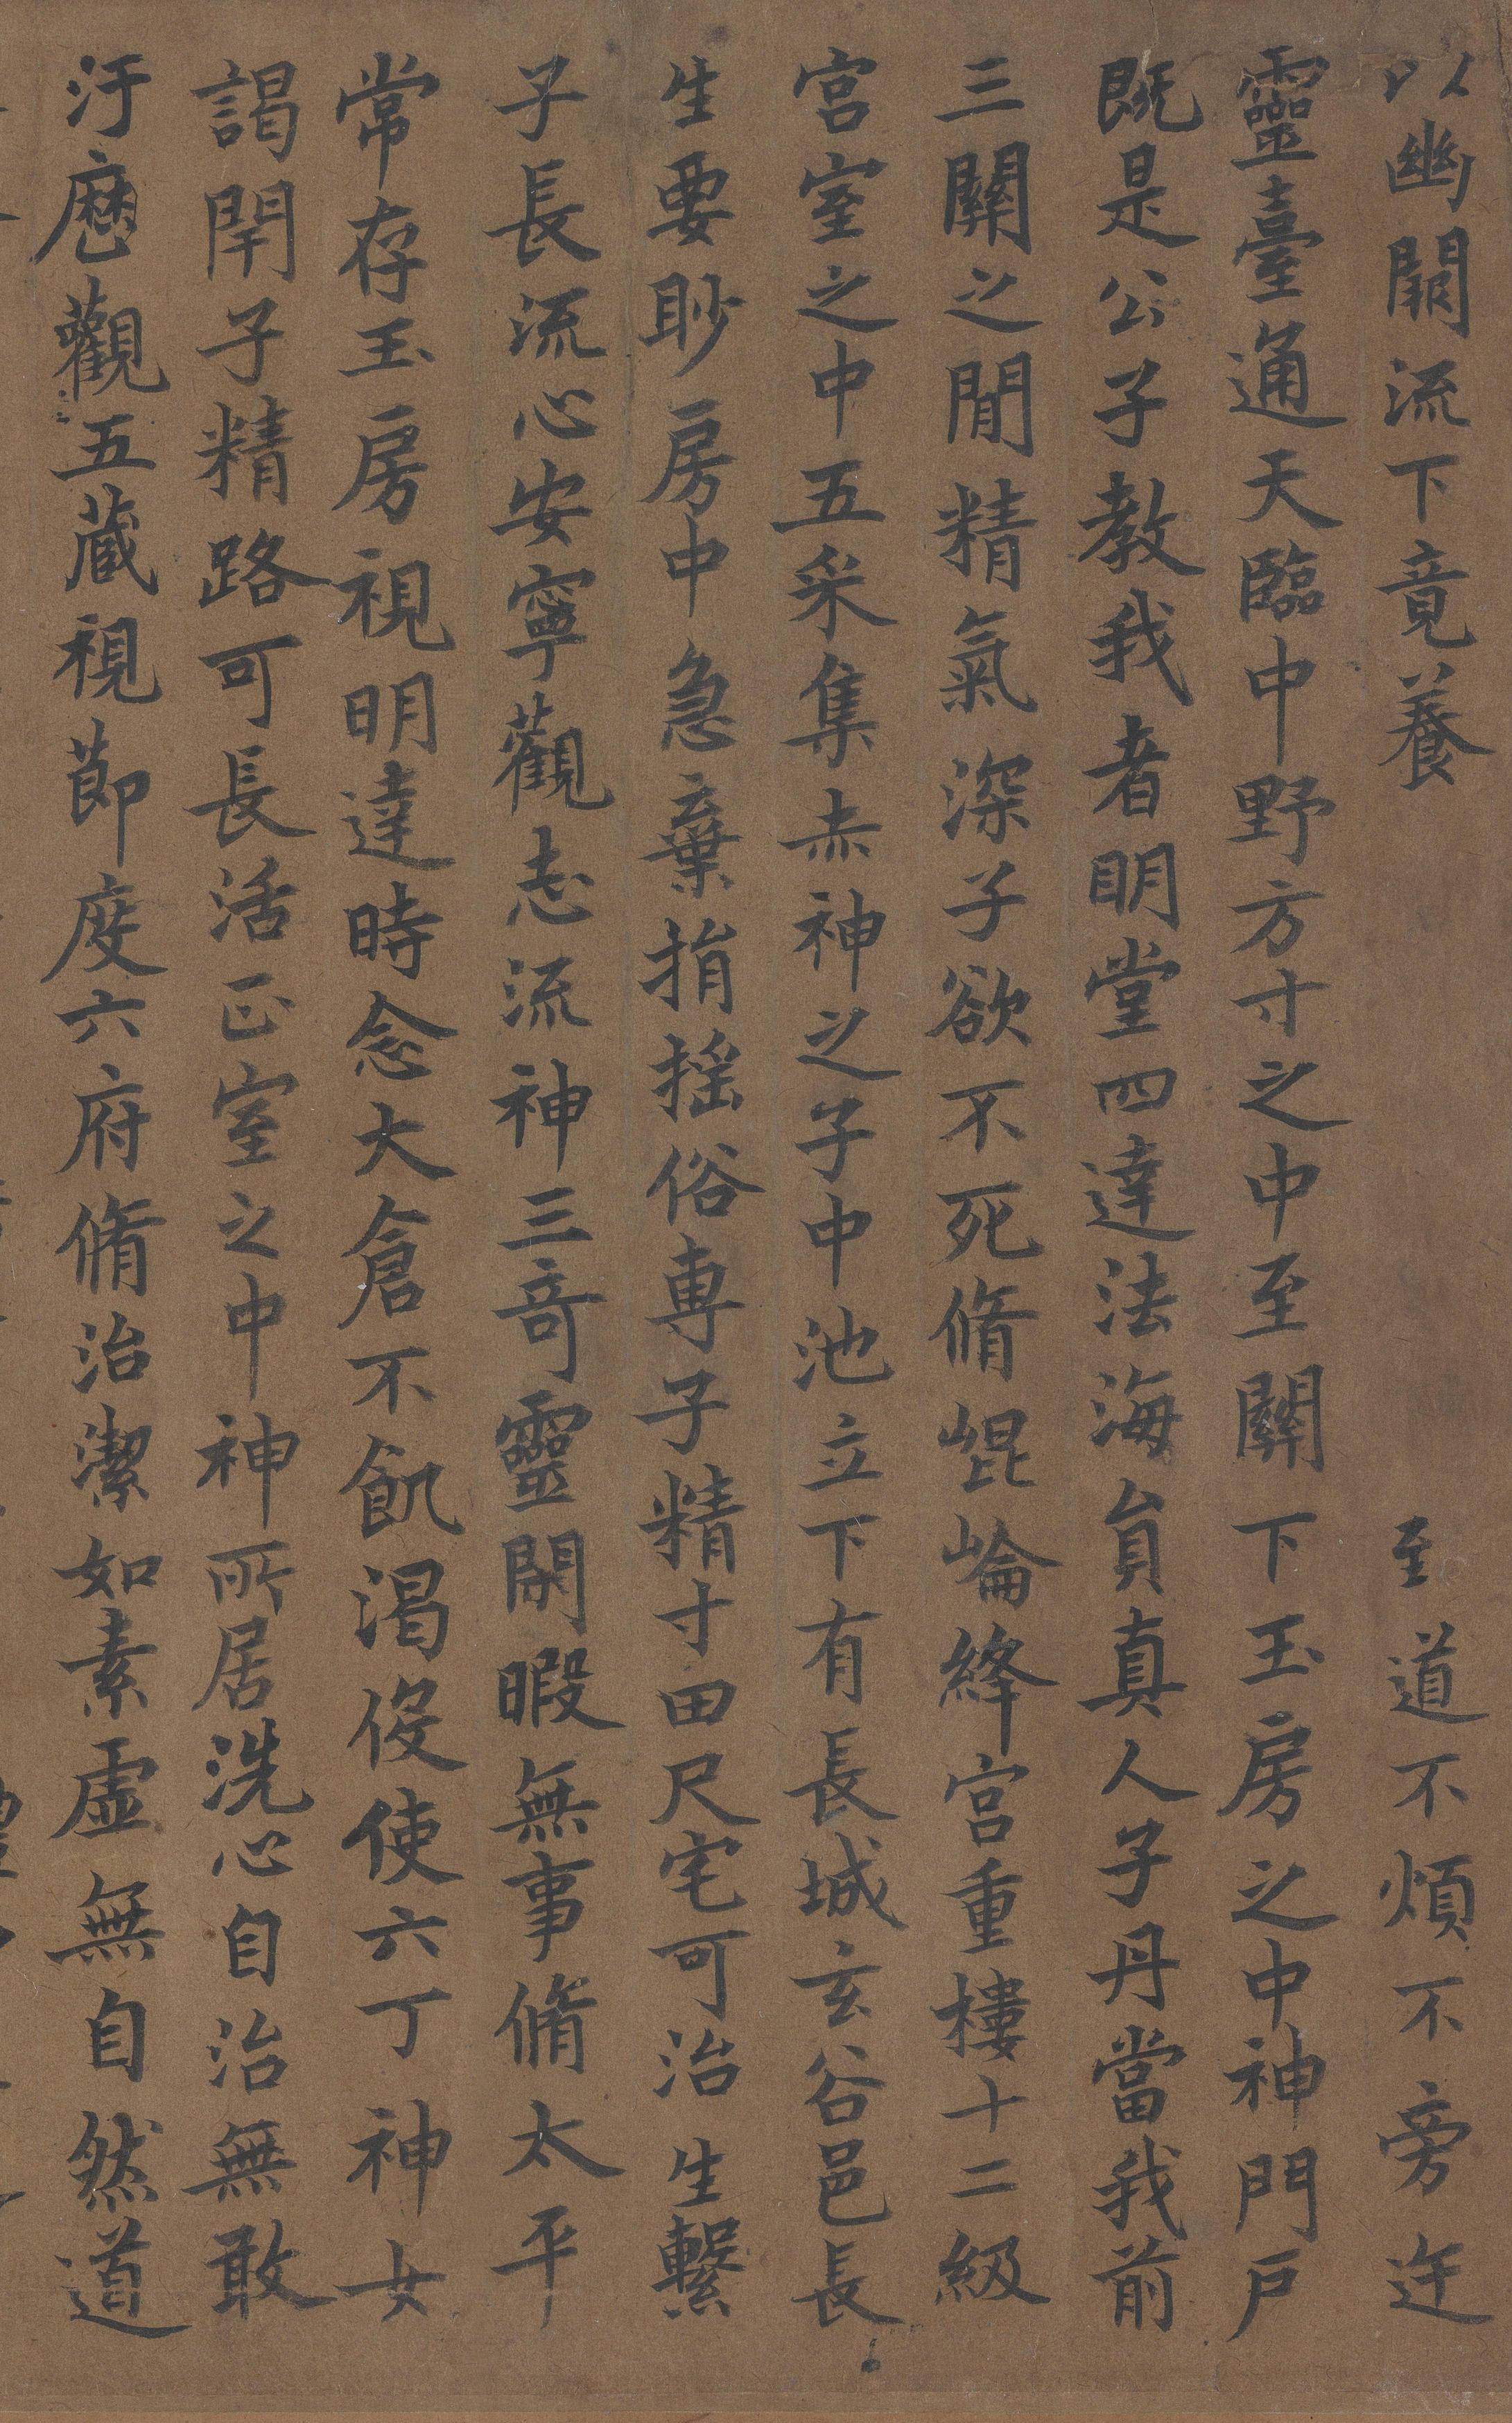 以幽關流下竟養至道不煩不旁迕
靈臺通天臨中野方寸之中至關下玉房之中神門戶
既是公子教我者明堂四達法海員真人子丹當我前
三關之閒精氣深子欲不死脩崐崘絳宮重樓十二級
宮室之中五采集赤神之子中池立下有長城玄谷邑長
生要眇房中急棄捐搖俗專子精寸田尺宅可治生繫
子長流心安寧觀志流神三奇靈閑暇無事脩太平
常存玉房視明達時念大倉不飢渴伇使六丁神女
謁閇子精路可長活正室之中神所居洗心自治無敢
汙歷觀五藏視節度六府脩治潔如素虛無自然道